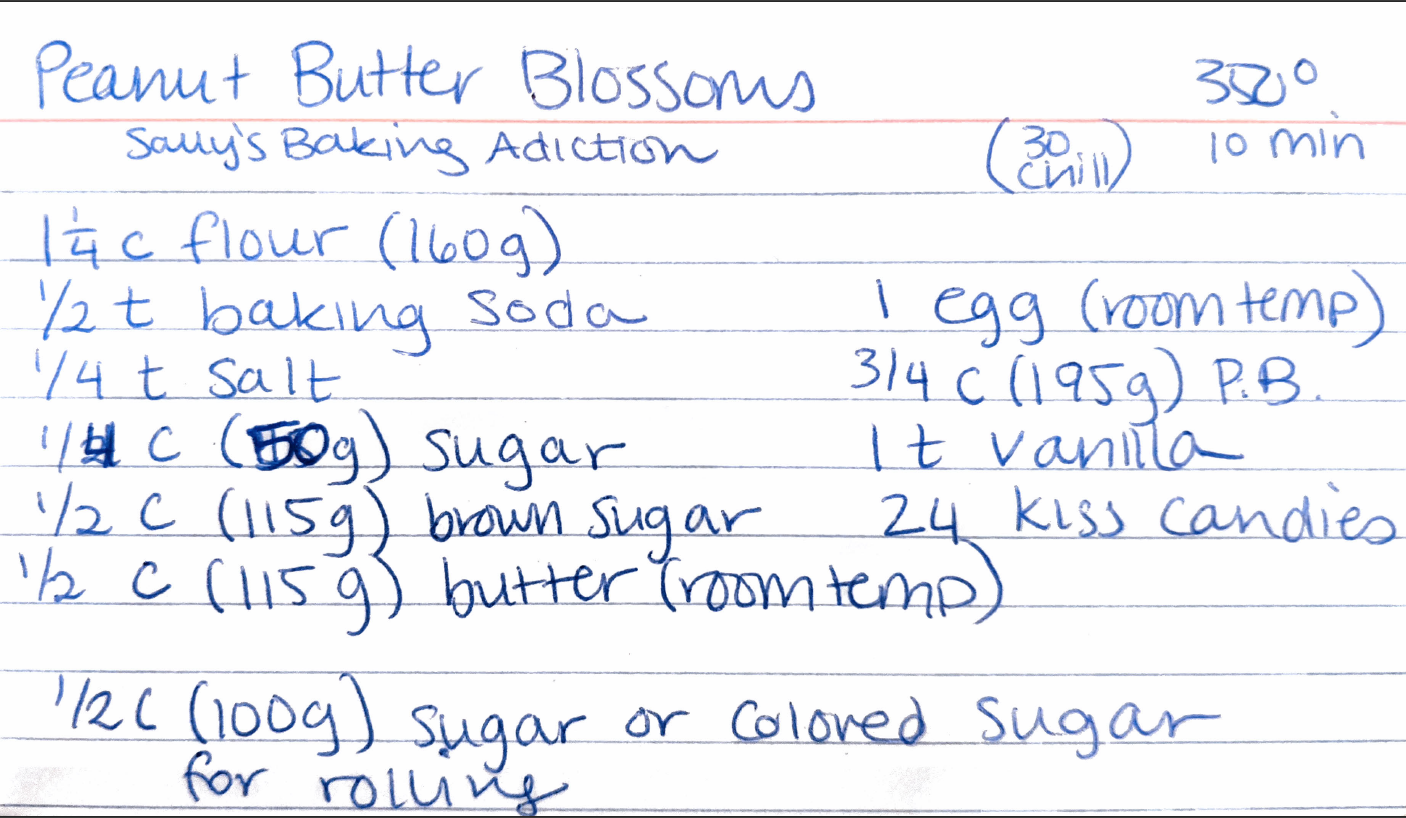 Peanut Butter Blossoms 350°
Sally's Baking Adiction (30 chill) 10 min
1 1/4 c flour (160g)
1/2 t baking soda
1/4 t salt
1/4 c (50g) sugar
1/2 c (115g) brown sugar
1/2 c (115g) butter (room temp)
1 egg (room temp)
3/4 c (195g) P.B.
1 t vanilla
24 kiss candies
1/2 c (100g) sugar or colored sugar
for rolling